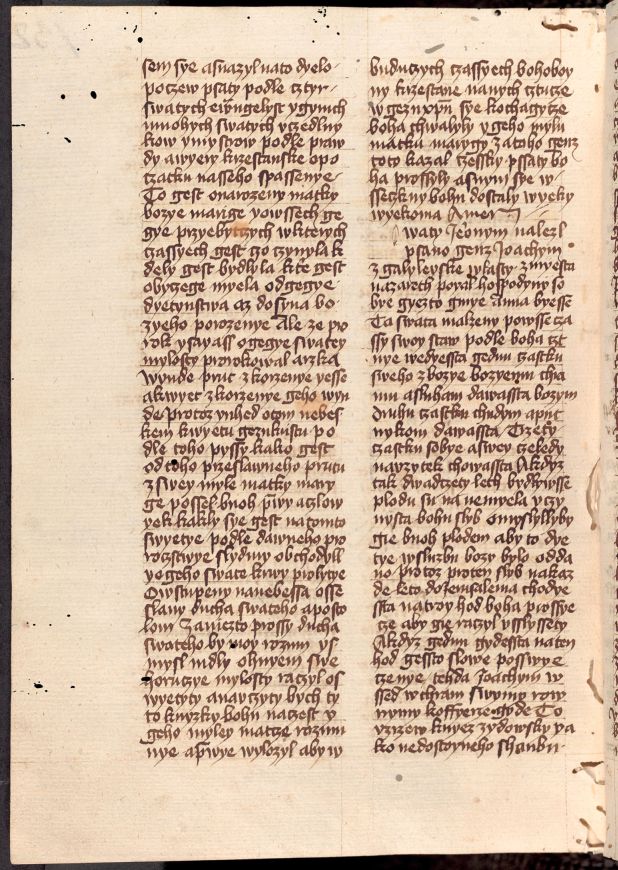 sem sye asnazyl nato dyelo
poczew psaty podle cztyr
swatych ewangelyst ygynich
mnohych swatych yczedlny
kow ymystrow podle praw
dy awyery krzestanske opo
czatku nasseho spassenye
To gest onarozeny matky
bozye marige yowssech ge
gye przyebytczych wkterych
czassyech gest go czynyla k
dely gest bydlyla kte gest
obyczege myela odgegye
dyetynstwa az dosyna bo
zyeho porozenye Ale ze pro
rok ysayass ogegye swatey
mylosty prorokowal arzka
wynde prut zkorzenye yesse
akwyet zkorzenye geho wyn
de protoz ynhed otom nebes
kem kwyetu gezukristu po
dle toho pyssy kako gest
odtoho przeslawneho prutu
zswey myle matky mary
ge possel buoh prwy aczlow
yek kakly sye gest natomto
swyetye podle dawneho pro
roczstwye slydmy obchodyll
yogeho swate krwy prolytye
Owstupeny nanebessa osse
slany ducha swateho aposto
lom Zaniezto prossy ducha
swateho by moy rozum ys
mysl mdly ohnyem swe
horuczye mylosty raczyl os
wyetyty anauczyty bych ty
to knyzky bohu naczest y
geho myley matcze rozum
nye aprwye wylozyl aby w
buduczych czassyech bohoboy
ny krzestane nanych cztucze
wgezuxpm sye kochagycze
boha chwalyly ygeho mylu
matku marygy zatoho genz
toty kazal czessky pssaty bo
ha prossyly asnym sye w
sseczkny bohu dostaly wyeky
wyekoma Amen
waty Jeronym nalezl
psano genz Joachym
zgalyleyske wlasty zmyesta
nazareth poyal hospodyny so
bye gyezto gmye anna byesse
Ta swata malzeny powsse cza
ssy swoy staw podle boha czt
nye wedyessta gednu czastku
sweho zbozye bozyemu chra
mu asluham dawassta bozym
Druhu czastku chudym aput
nykom dawassta Trzety
czastku sobye aswey czeledy
nauzytek chowassta Akdyz
tak dwadczety leth bydlywsse
plodu su na nemyela yczy
nysta bohu slyb omyslyllyby
gie buoh plodem aby to dye
tye wsluzbu bozy bylo odda
no protoz proten slyb nakaz
de leto dojerusalema chodye
ssta natrzy hod boha prossye
cze aby gie raczyl vslyssety
Akdyz gednu gydessta naten
hod gessto slowe posswye
czenye tehda Joachym w
ssed wchram swymy row
nymy koffyerzegyde To
vzrzew knyez zydowsky ya
ko nedostoyneho shanbu